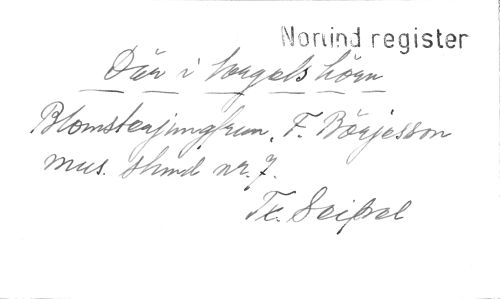 Norlind register
Där i torgets hörn
Blomsterjungfrun. F. Börjesson
mus. shmd nr. 7.
Tr. Seipel